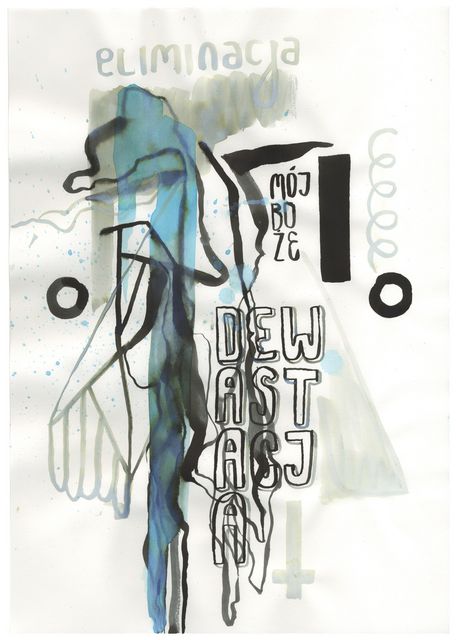 eLIMINACJA
MÓJ
BO
ŻE
DEW
AST
ACJ
A